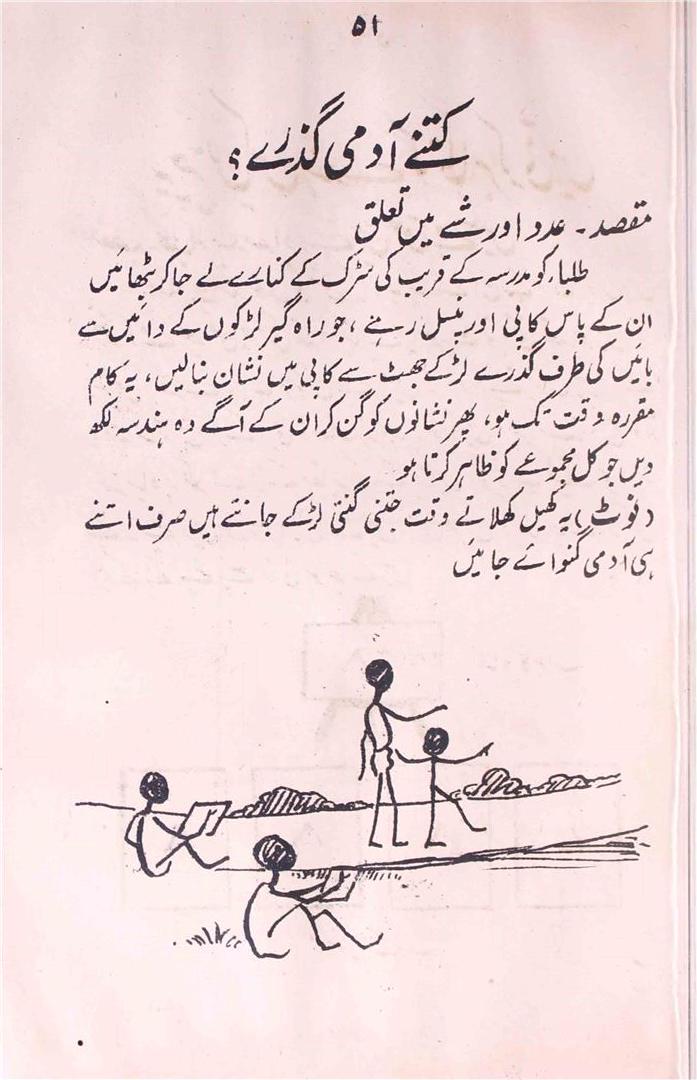 ۵۱
کتنے آدمی گذرے؟
مقصد۔ عدد اور شے میں تعلق
طلباء کو مدرسہ کے قریب کی سڑک کے کنارے لے جا کر بٹھائیں
ان کے پاس کاپی اور پنسل رہے، جو راہ گیر لڑکوں کے دائیں سے
بائیں کی طرف گذرے لڑکے جھٹ سے کاپی میں نشان بنالیں، یہ کام
مقررہ وقت تک ہو، پھر نشانوں کو گن کر ان کے آگے وہ ہندسہ لکھ
دیں جو کل مجموعے کو ظاہر کرتا ہو
(نوٹ) یہ کھیل کھلاتے وقت جتنی گنتی لڑکے جانتے ہیں صرف اتنے
ہی آدمی گنوائے جائیں